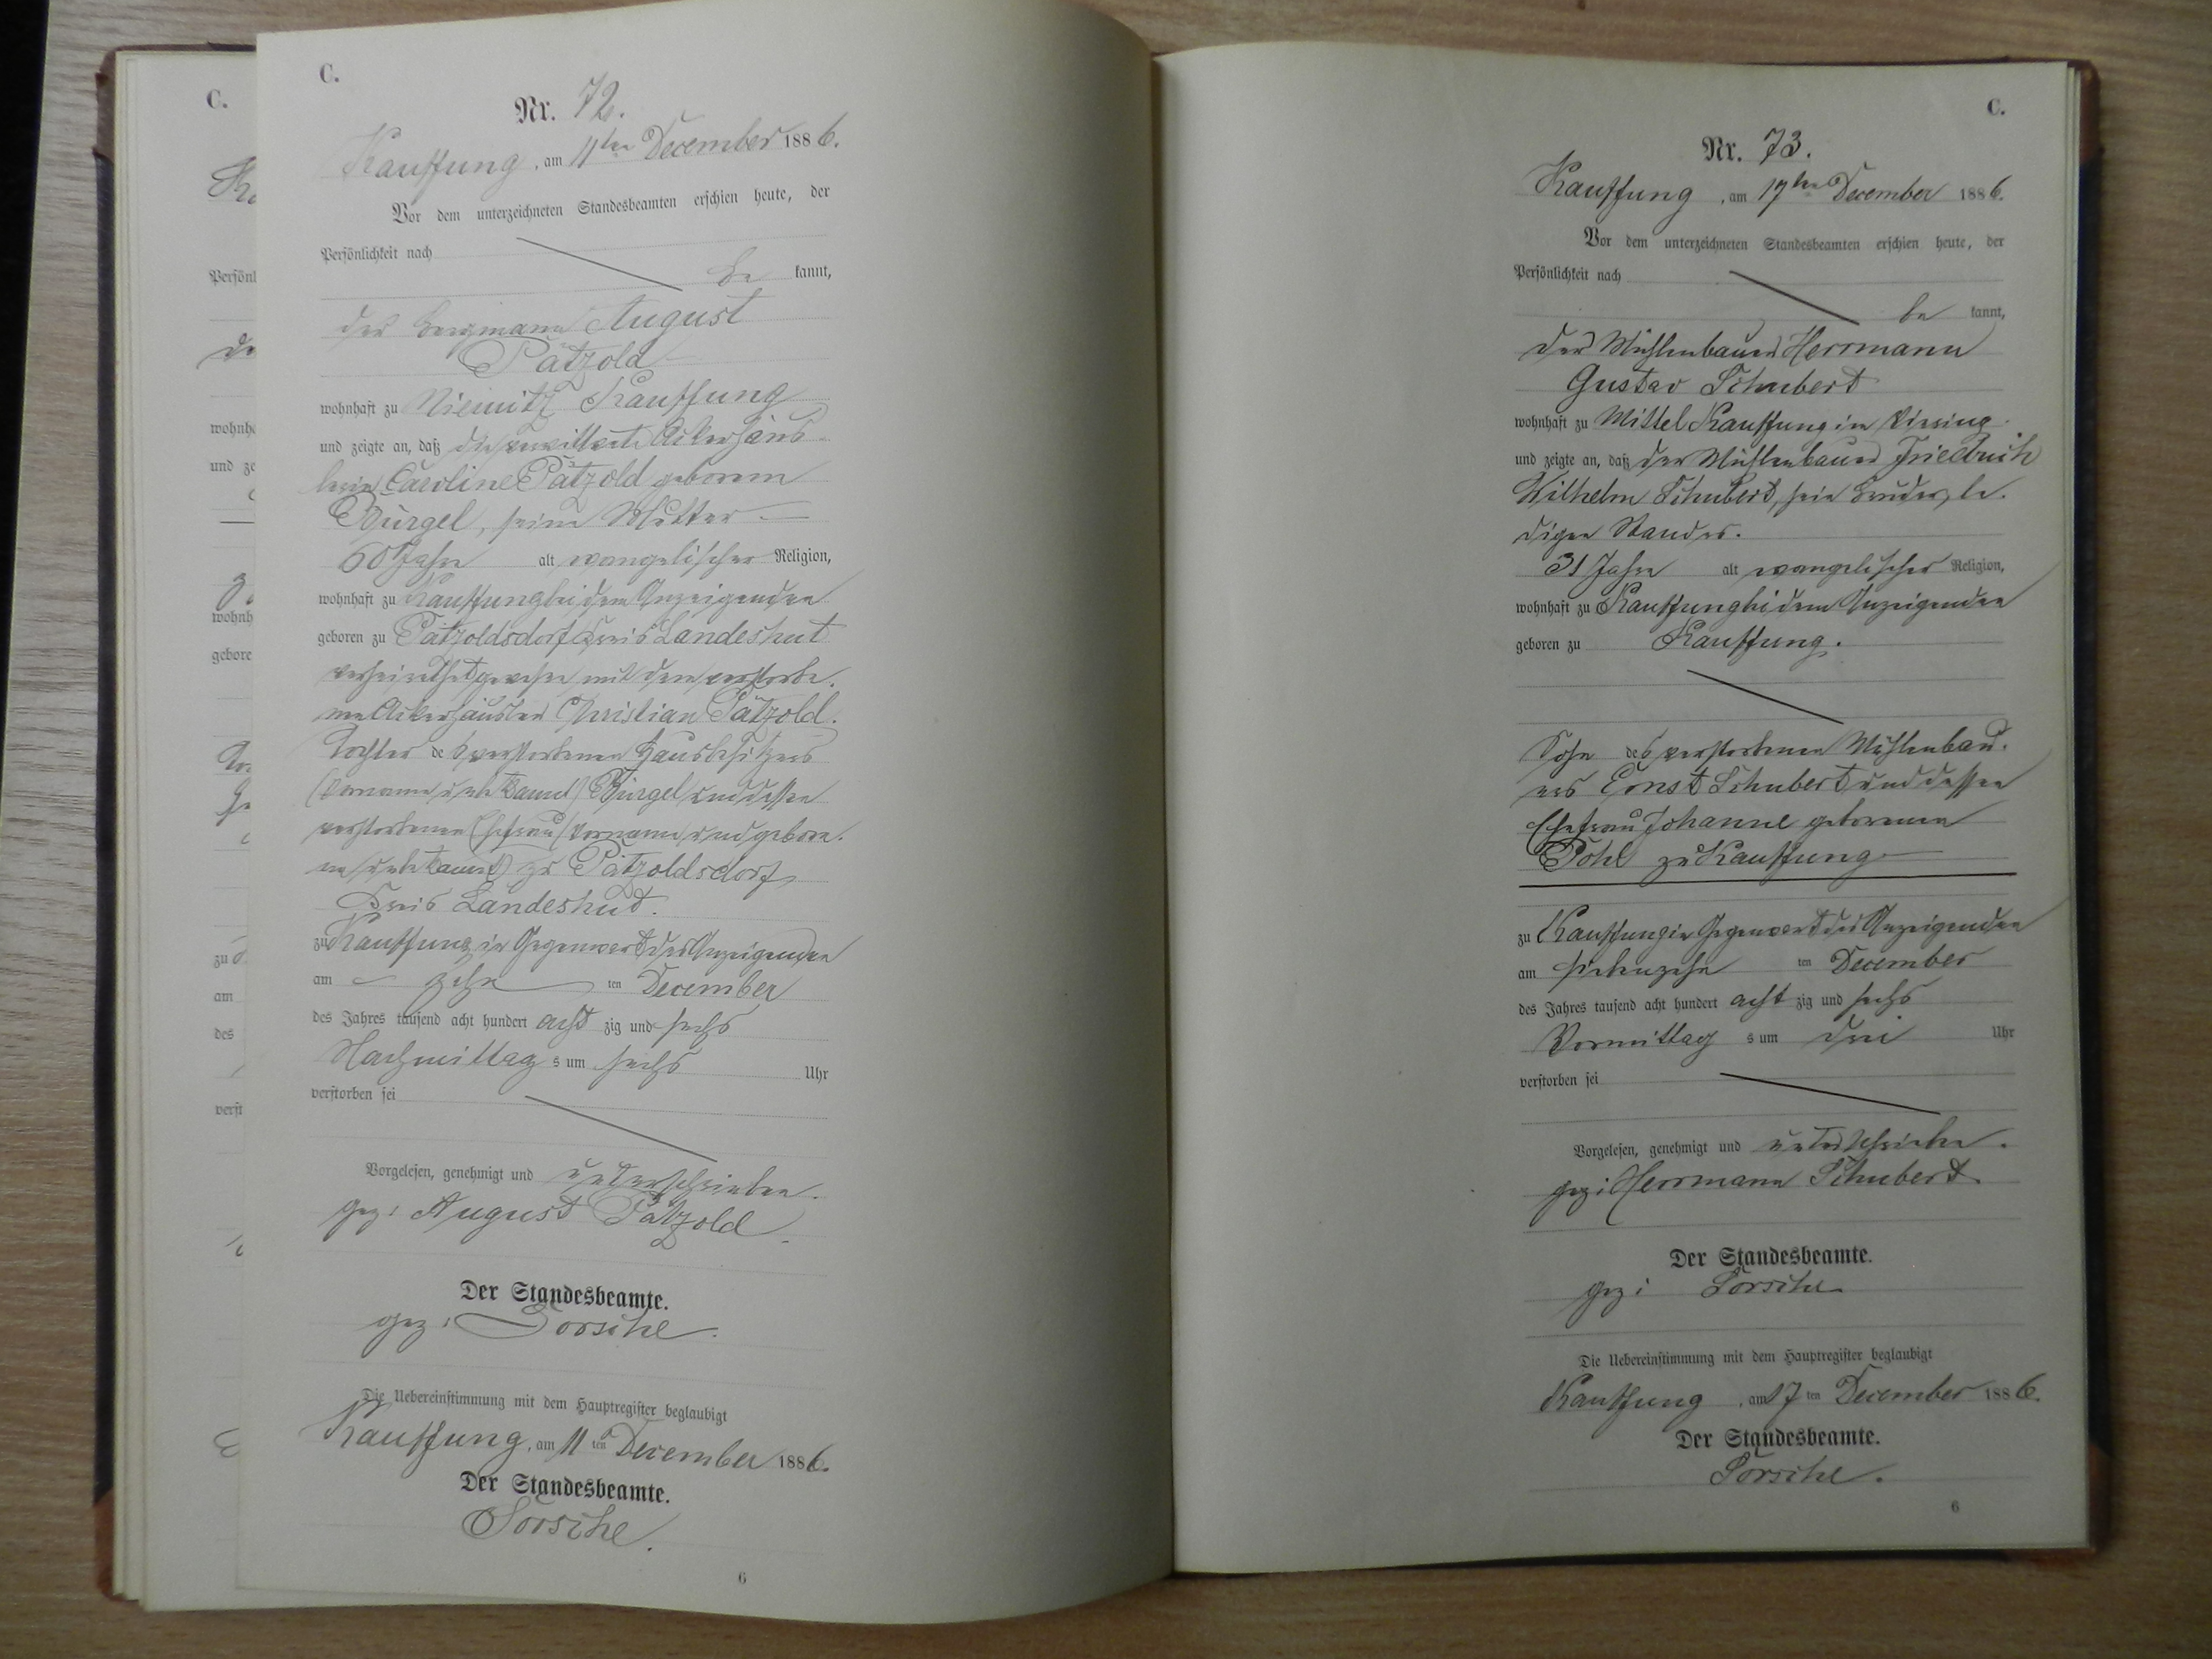 C.
Nr. 72.
Kauffung, am 11ten December 1886.
Vor dem unterzeichneten Standesbeamten erschien heute, der
Persönlichkeit nach
be kannt,
der Bergmann August
Pätzold
wohnhaft zu Niemitz Kauffung
und zeigte an, daß die verwittwete Ackerhäus-
lerin Caroline Pätzold geborenen
Bürgel, seine Mutter
60 Jahre alt evangelischer Religion,
wohnhaft zu Kauffung bei dem Anzeigenden
geboren zu Pätzoldsdorf Kreis Landeshut
verheirathet gewesen mit dem verstorbe-
nen Ackerhäusler Christian Pätzold.
Tochter des verstorbenen Hausbesitzers
(Vorname unbekannt) Bürgel und dessen
verstorbenen Ehefrau (Vorname und gebore-
ne unbekannt) zu Pätzoldsdorf
Kreis Landeshut.
zu Kauffung in Gegenwart des Anzeigenden
am zehn ten December
des Jahres tausend acht hundert acht zig und sechs
Nachmittag s um sechs Uhr
verstorben sei
Vorgelesen, genehmigt und unterschrieben.
gez: August Pätzold.
Der Standesbeamte.
gez:
Die Uebereinstimmung mit dem Hauptregister beglaubigt
Kauffung, am 11 ten December 1886.
Der Standesbeamte.
6
C.
Nr. 73.
Kauffung, am 17ten December 1886.
Vor dem unterzeichneten Standesbeamten erschien heute, der
Persönlichkeit nach
be kannt,
der Mühlenbauer Herrmann
Gustav Schubert
wohnhaft zu Mittel Kauffung im
und zeigte an, daß der Mühlenbauer Friedrich
Wilhelm Schubert, sein Bruder, le-
digen Standes.
31 Jahre alt evangelischer Religion,
wohnhaft zu Kauffung bei dem Anzeigenden
geboren zu Kauffung.
Sohn des verstorbenen Mühlenbau-
ers Ernst Schubert und dessen
Ehefrau Johanne geborenen
Pohl zu Kauffung
zu Kauffung in Gegenwart des Anzeigenden
am siebenzehn ten December
des Jahres tausend acht hundert acht zig und sechs
Vormittag s um drei Uhr
verstorben sei
Vorgelesen, genehmigt und unterschrieben.
gez: Herrmann Schubert.
Der Standesbeamte.
gez:
Die Uebereinstimmung mit dem Hauptregister beglaubigt
Kauffung, am 17 ten December 1886.
Der Standesbeamte.
6